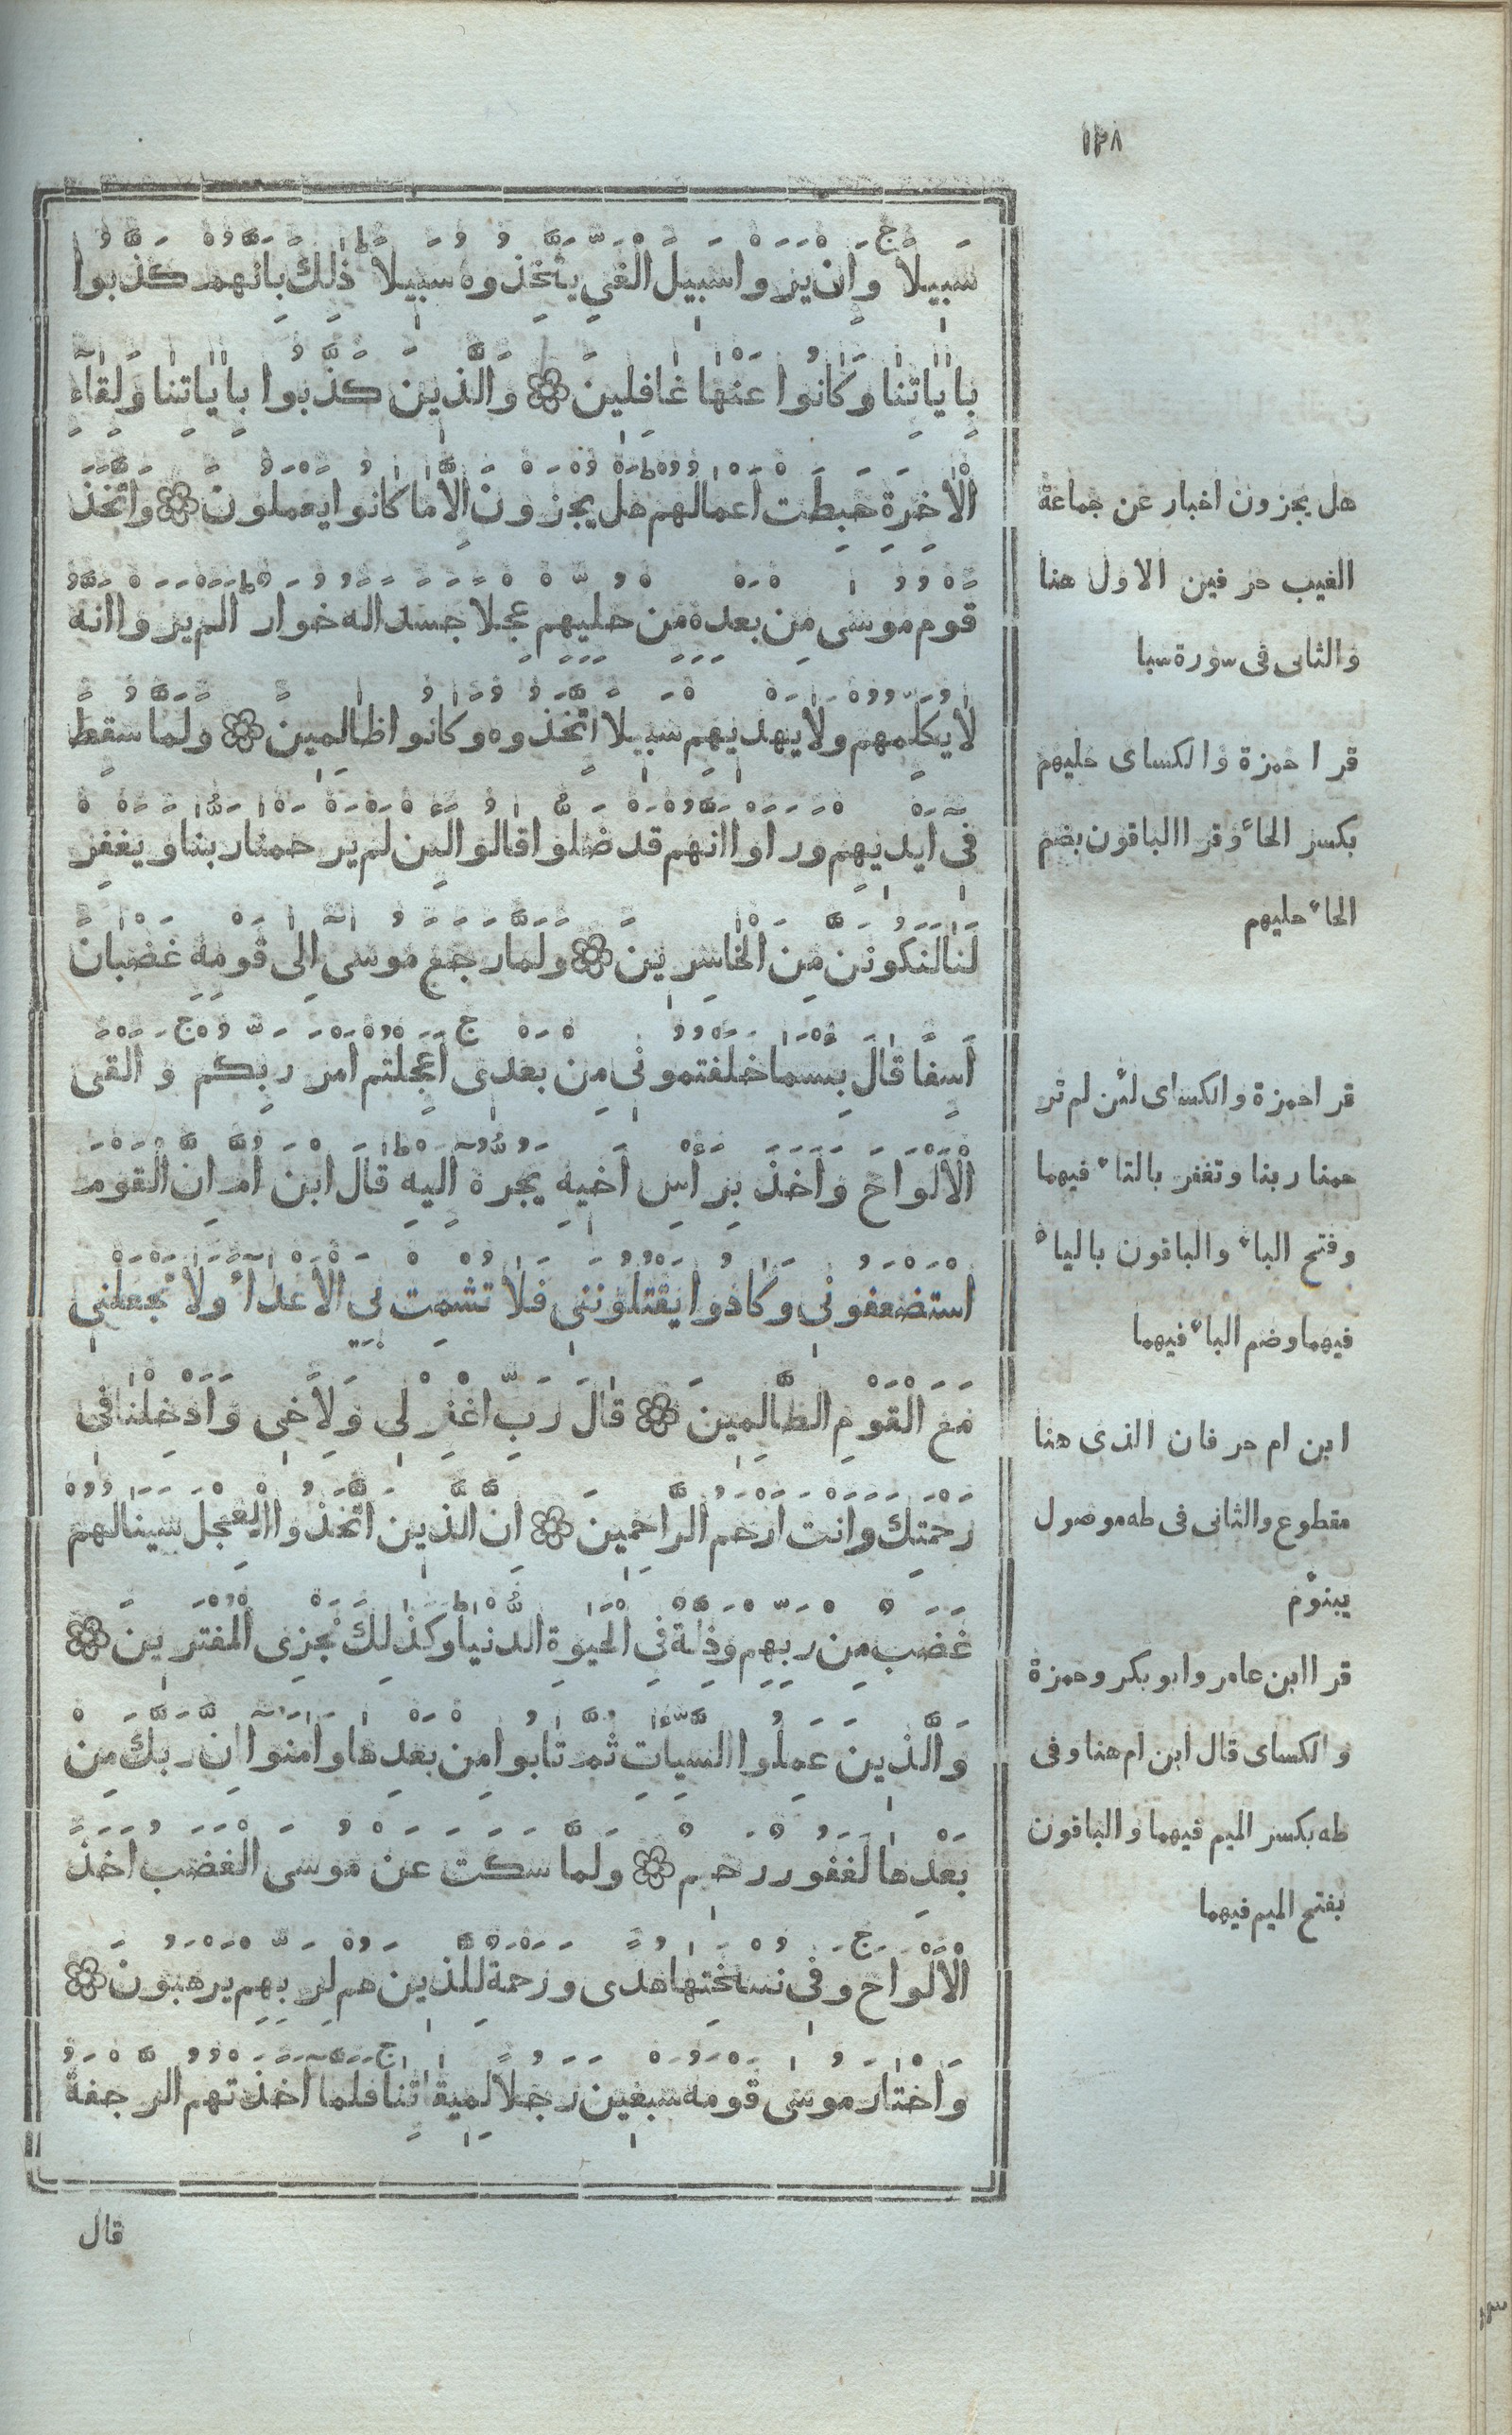 ١٣٨
سَبِيلاً ج وَاِنْ يَرَوْا سَبِيلَ الْغَيِّ يَتَّخِذُوهُ سَبِيلاً ط ذٰلِكَ بِاَنَّهُمْ كَذَّبُوا
بِاٰيَاتِنَا وَكَانُوا عَنْهَا غَافِلِينَ ۞ وَالَّذِينَ كَذَّبُوا بِاٰيَاتِنَا وَلِقَآءِ
الْاٰخِرَةِ حَبِطَتْ اَعْمَالُهُمْ ط هَلْ يُجْزَوْنَ اِلَّا مَا كَانُوا يَعْمَلُونَ ۞ وَاتَّخَذَ
قَوْمُ مُوسٰى مِنْ بَعْدِهِ مِنْ حُلِيِّهِمْ عِجْلاً جَسَدًا لَهُ خُوَارٌ ط اَلَمْ يَرَوْا اَنَّهُ
لَا يُكَلِّمُهُمْ وَلَا يَهْدِيهِمْ سَبِيلاً اِتَّخَذُوهُ وَكَانُوا ظَالِمِينَ ۞ وَلَمَّا سُقِطَ
فِىٓ اَيْدِيهِمْ وَرَاَوْا اَنَّهُمْ قَدْ ضَلُّوا قَالُوا لَئِنْ لَمْ يَرْحَمْنَا رَبُّنَا وَيَغْفِرْ
لَنَا لَنَكُونَنَّ مِنَ الْخَاسِرِينَ ۞ وَلَمَّا رَجَعَ مُوسٰىٓ اِلٰى قَوْمِهِ غَضْبَانَ
اَسِفًا قَالَ بِئْسَمَا خَلَفْتُمُونِى مِنْ بَعْدِى ج اَعَجِلْتُمْ اَمْرَ رَبِّكُمْ ج وَاَلْقَى
الْاَلْوَاحَ وَاَخَذَ بِرَأْسِ اَخِيهِ يَجُرُّهُٓ اِلَيْهِ ط قَالَ ابْنَ اُمَّ اِنَّ الْقَوْمَ
اسْتَضْعَفُونِى وَكَادُوا يَقْتُلُونَنِى فَلَا تُشْمِتْ بِيَ الْاَعْدَآءَ وَلَا تَجْعَلْنِى
مَعَ الْقَوْمِ الظَّالِمِينَ ۞ قَالَ رَبِّ اغْفِرْ لِى وَلِاَخِى وَاَدْخِلْنَا فِى
رَحْمَتِكَ وَاَنْتَ اَرْحَمُ الرَّاحِمِينَ ۞ اِنَّ الَّذِينَ اتَّخَذُوا الْعِجْلَ سَيَنَالُهُمْ
غَضَبٌ مِنْ رَبِّهِمْ وَذِلَّةٌ فِى الْحَيٰوةِ الدُّنْيَا ط وَكَذٰلِكَ نَجْزِى الْمُفْتَرِينَ ۞
وَالَّذِينَ عَمِلُوا السَّيِّئَاتِ ثُمَّ تَابُوا مِنْ بَعْدِهَا وَاٰمَنُوٓا اِنَّ رَبَّكَ مِنْ
بَعْدِهَا لَغَفُورٌ رَحِيمٌ ۞ وَلَمَّا سَكَتَ عَنْ مُوسَى الْغَضَبُ اَخَذَ
الْاَلْوَاحَ ج وَفِى نُسْخَتِهَا هُدًى وَرَحْمَةٌ لِلَّذِينَ هُمْ لِرَبِّهِمْ يَرْهَبُونَ ۞
وَاخْتَارَ مُوسٰى قَوْمَهُ سَبْعِينَ رَجُلاً لِمِيقَاتِنَا ج فَلَمَّآ اَخَذَتْهُمُ الرَّجْفَةُ
قال
هل يجزون اخبار عن جماعة
الغيب حرفين الاول هنا
والثانى فى سورة سبا
قرا حمزة والكساى حليهم
بكسر الحاء وقرا الباقون بضم
الحاء حليهم
قرا حمزة والكساى لئن لم تر
حمنا ربنا وتغفر بالتاء فيهما
وفتح الباء والباقون بالياء
فيهما وضم الباء فيهما
ابن ام حرفان الذى هنا
مقطوع والثانى فى طه موصول
يبنؤم
قرا ابن عامر وابو بكر وحمزة
والكساى قال ابن ام هنا وفى
طه بكسر الميم فيهما والباقون
بفتح الميم فيهما